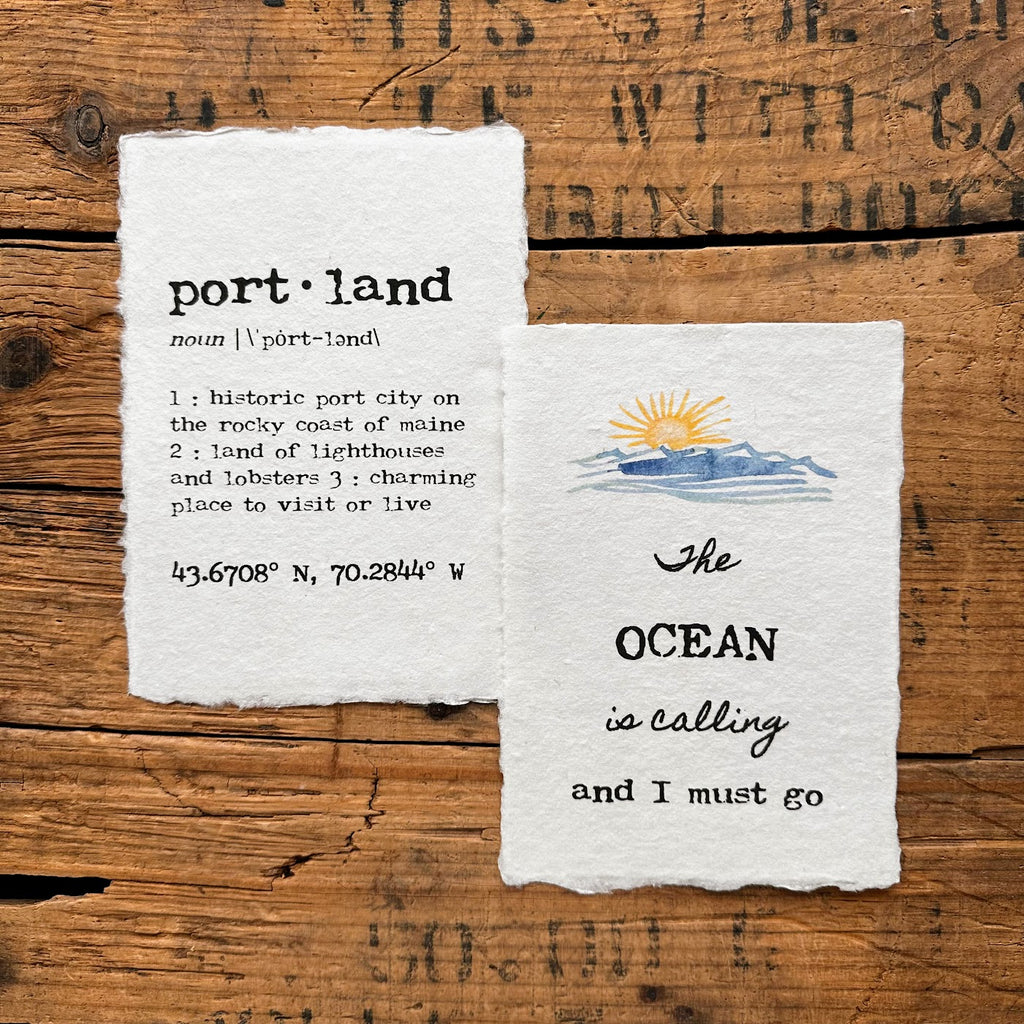 WITH
port·land
noun | \ˈpȯrt-lənd\
1 : historic port city on
the rocky coast of maine
2 : land of lighthouses
and lobsters 3 : charming
place to visit or live
43.6708° N, 70.2844° W
The
OCEAN
is calling
and I must go